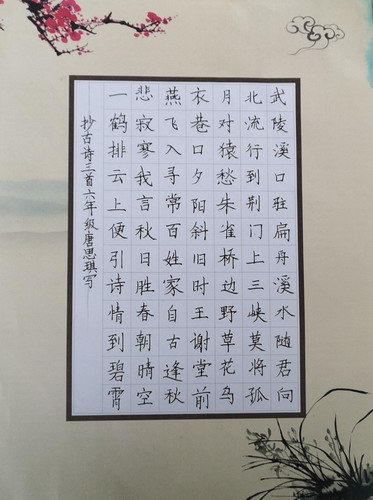 武陵溪口驻扁舟溪水随君向
北流行到荆门上三峡莫将孤
月对猿愁朱雀桥边野草花乌
衣巷口夕阳斜旧时王谢堂前
燕飞入寻常百姓家自古逢秋
悲寂寥我言秋日胜春朝晴空
一鹤排云上便引诗情到碧霄
抄古诗三首六年级唐思琪写